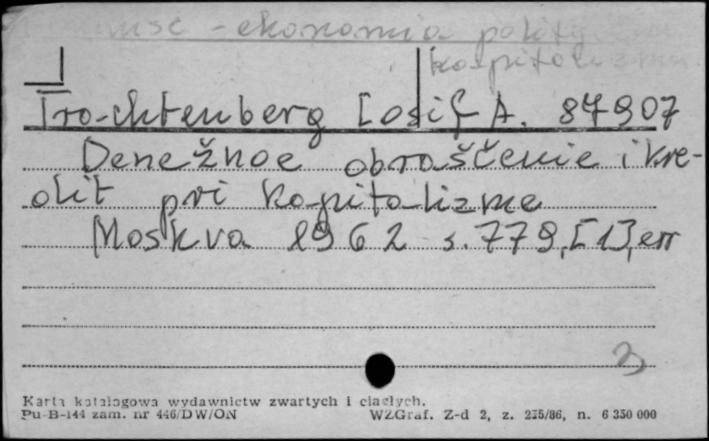 - ekonomia polity
kapitalizmu
Trachtenberg Iosif A. 87907
Denežnoe obraščenie i kre-
dit pri kapitalizme
Moskva 1962 s. 779, [1], err
Karta katalogowa wydawnictw zwartych i ciągłych.
Pu-B-144 zam. nr 446/DW/ON WZGraf. Z-d 2, z. 235/86, n. 6 350 000